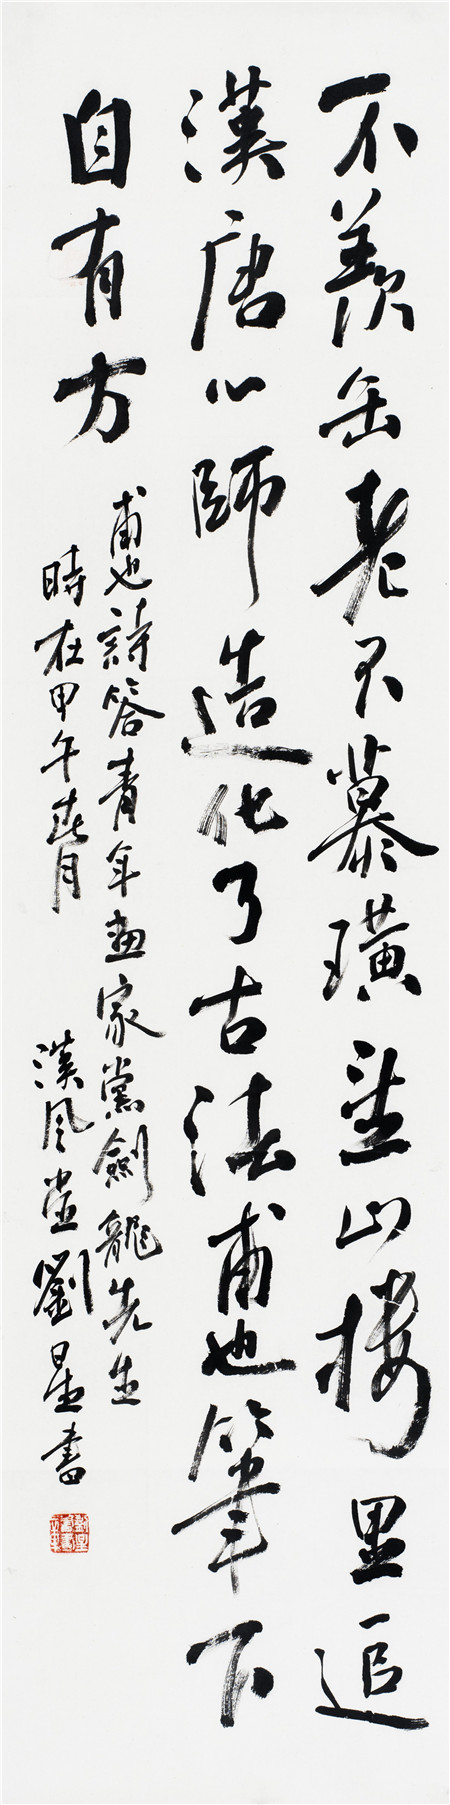 不羨缶老不慕璜望山樓里追
漢唐心師造化了古法甫也筆下
自有方
甫也詩答青年畫家黨劍龍先生
時在甲午春月 漢風堂劉星書